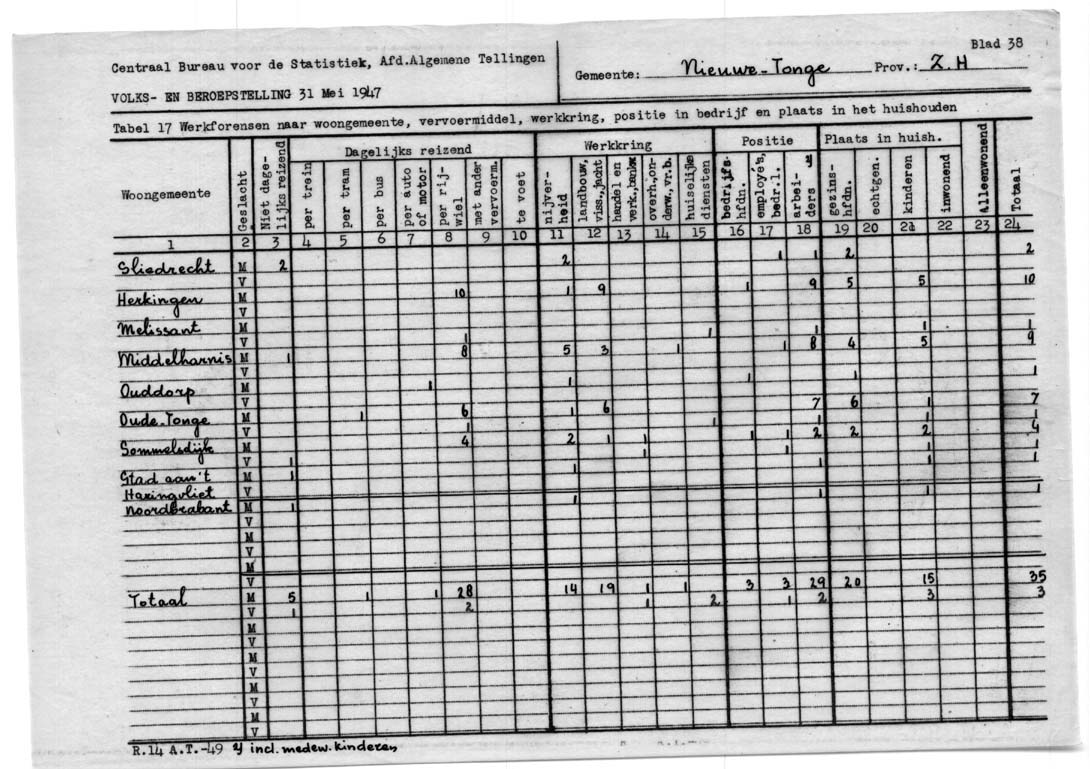 Blad 38
Centraal Bureau voor de Statistiek, Afd.Algemene Tellingen
Gemeente: Nieuwe-Tonge Prov.: Z.H
VOLKS- EN BEROEPSTELLING 31 Mei 1947
Tabel 17 Werkforensen naar woongemeente, vervoermiddel, werkkring, positie in bedrijf en plaats in het huishouden
Woongemeente
Geslacht
Niet dage-
lijks reizend
Dagelijks reizend
per trein
per tram
per bus
per auto
of motor
per rij-
wiel
met ander
vervoerm.
te voet
Werkkring
nijver-
heid
landbouw,
viss.,jacht
handel en
verk.,bankw
overh.,on-
derw.,vr.b.
huiselijke
diensten
Positie
bedrijfs-
hfdn.
employé's,
bedr.l.
arbei- y
ders
Plaats in huish.
gezins-
hfdn.
echtgen.
kinderen
inwonend
Alleenwonend
Totaal
1 2 3 4 5 6 7 8 9 10 11 12 13 14 15 16 17 18 19 20 21 22 23 24
Sliedrecht M 2 2 1 1 2 2
V
Herkingen M 10 1 9 1 9 5 5 10
V
Melissant M
V 1 1 1 1 1
Middelharnis M 1 8 5 3 1 1 8 4 5 9
V
Ouddorp M 1 1 1 1 1
V
Oude-Tonge M 1 6 1 6 7 6 1 7
V 1 1 1 1 1
Sommelsdijk M 4 2 1 1 1 1 2 2 2 4
V 1 1 1 1 1
Stad aan't M 1 1 1 1 1
Haringvliet V
Noordbrabant M 1 1 1 1 1
V
M
V
M
V
Totaal M 5 1 1 28 14 19 1 1 3 3 29 20 15 35
V 1 2 1 2 1 2 3 3
M
V
M
V
M
V
M
V
R.14 A.T.-49 y incl. medew. kinderen